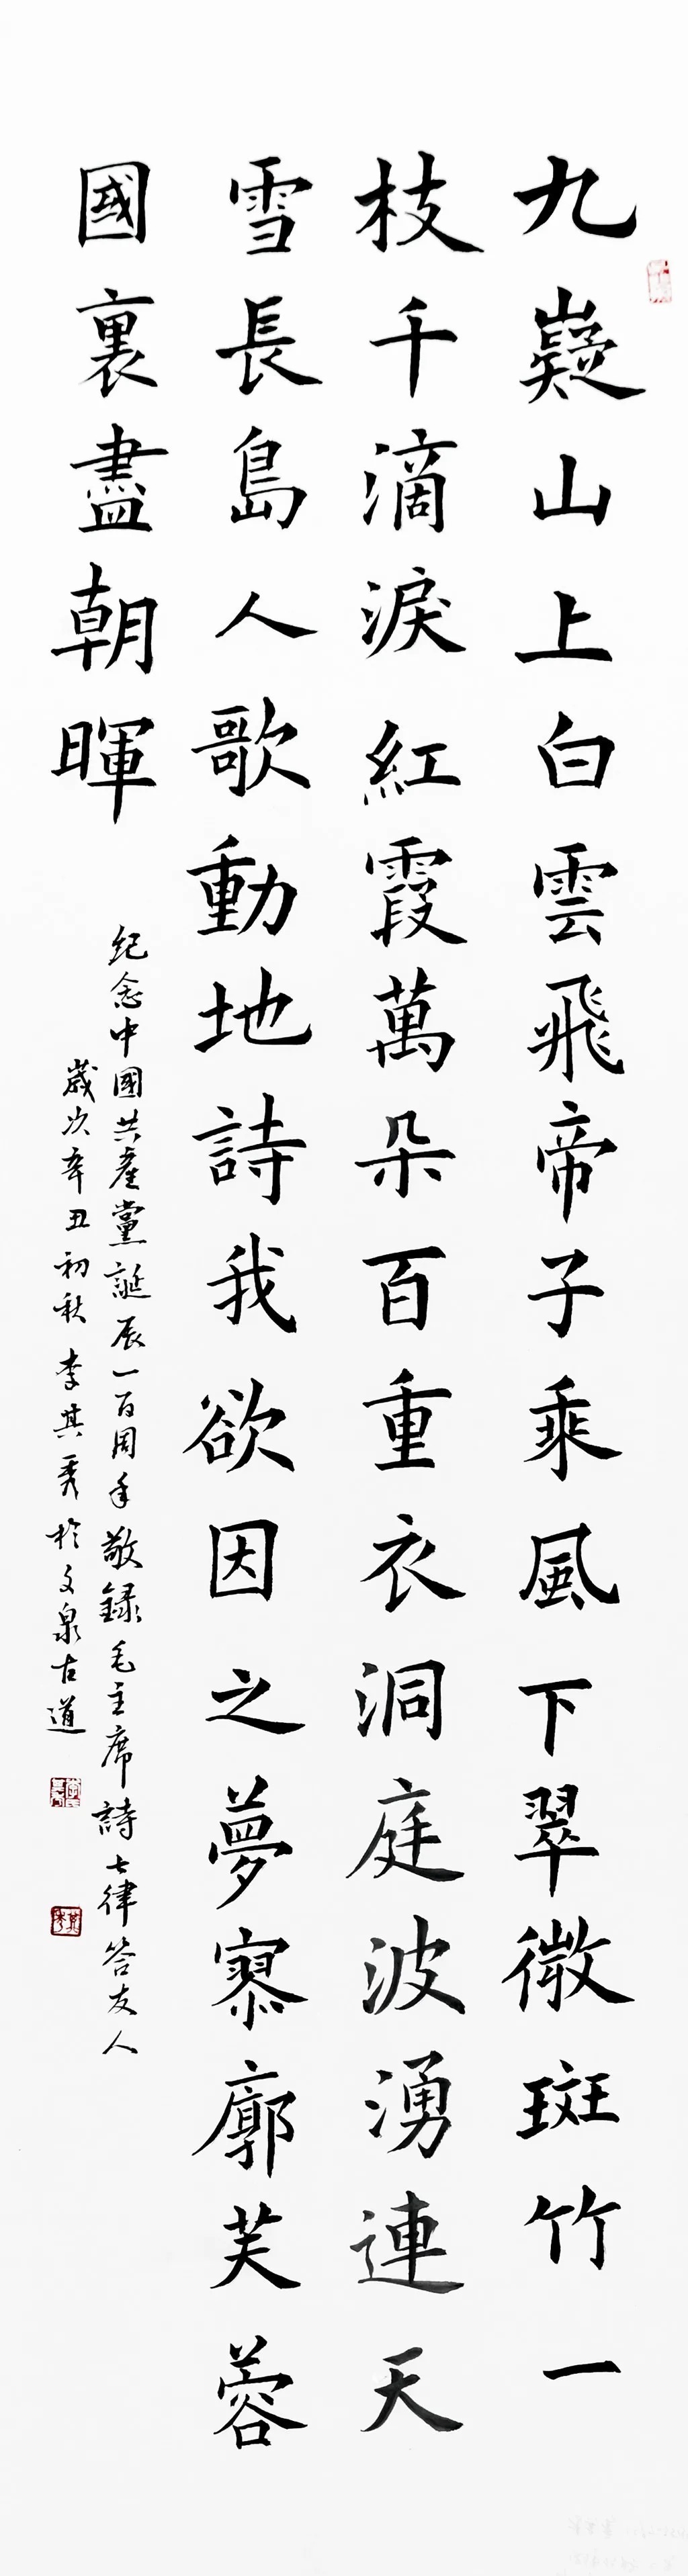 九嶷山上白雲飛帝子乘風下翠微斑竹一
枝千滴淚紅霞萬朵百重衣洞庭波湧連天
雪長島人歌動地詩我欲因之夢寥廓芙蓉
國裏盡朝暉
紀念中國共產黨誕辰一百周年敬録毛主席詩七律答友人
歲次辛丑初秋李其秀於文泉古道